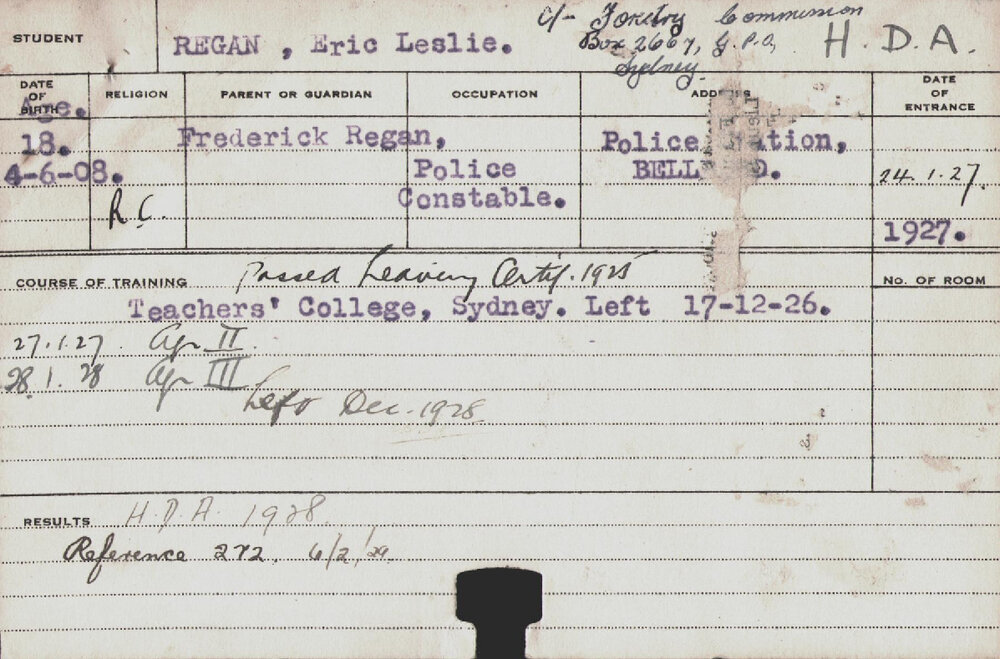 c/- Forestry Commission
STUDENT REGAN , Eric Leslie. Box 2667, G.P.O, H.D.A.
Sydney.
DATE OF BIRTH RELIGION PARENT OR GUARDIAN OCCUPATION ADDRESS DATE OF ENTRANCE
Age.
18. Frederick Regan, Police ation,
4-6-08. Police BELL D. 24.1.27.
R.C. Constable.
1927.
COURSE OF TRAINING Passed Leaving Certif. 1925 NO. OF ROOM
Teachers' College, Sydney. Left 17-12-26.
27.1.27. Agr II.
28.1.28 Agr III
Left Dec. 1928
RESULTS H.D.A. 1928.
Reference 272. 6/2/29.